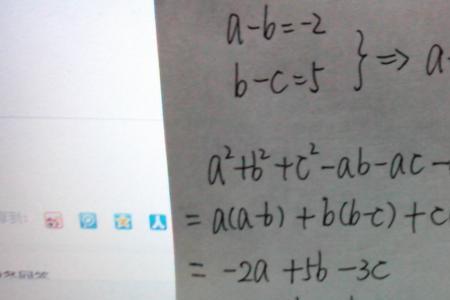 a-b=-2
b-c=5 } ⇒ a-
a²+b²+c²-ab-ac-
= a(a-b)+b(b-c)+c
= -2a+5b-3c